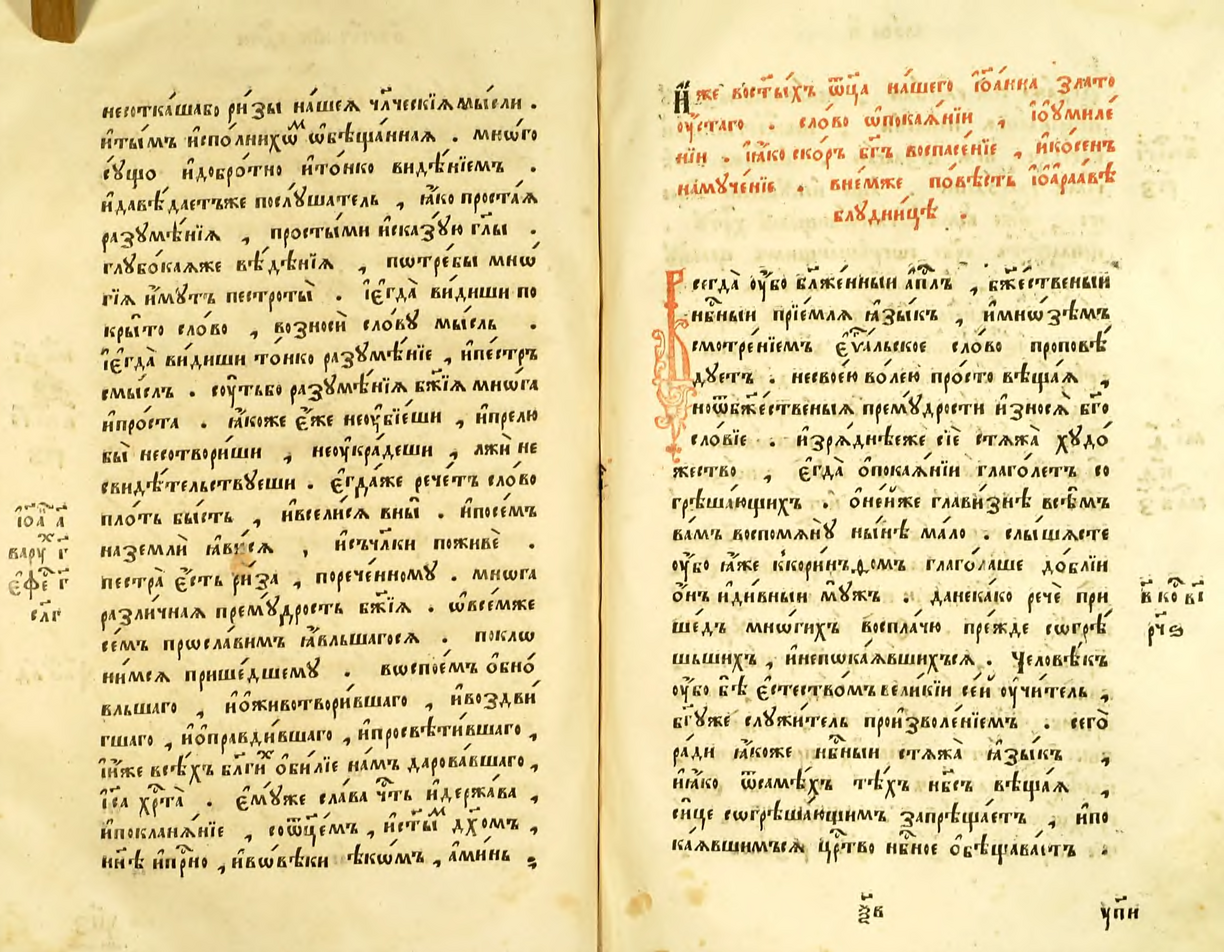 несоткашабо ри́зы на́шеѧ чл҃ческїѧ мы́сли .
и҆ты́мъ и҆спо́лнихѡⷨ ѡ҆бѣща́ннаѧ . мно́го
сꙋщо и҆добро́тно и҆то́нко ви́дѣнїемъ .
и҆давѣ́даетъже послꙋ́шатель , ꙗ҆́ко проста́ѧ
разꙋмѣ́нїѧ , просты́ми и҆сказꙋ́ю гл҃ы .
глꙋбо́каѧже вѣ́дѣнїѧ , пѡтре́бы мнѡ́
гїѧ и҆́мꙋтъ пестроты̀ . і҆є҆гда̀ ви́диши по
кры́то сло́во , возносѝ сло́вꙋ мы́сль .
і҆є҆гда̀ ви́диши то́нко разꙋмѣ́нїе , и҆пе́стръ
смы́слъ . сꙋ́тьбо разꙋмѣ́нїѧ бж҃їѧ мнѡ́га
и҆про́ста . ꙗ҆́коже є҆́же неоу҆бїе́ши , и҆прелю
бы̀ несотвори́ши , неоу҆кра́деши , лжѝ не
свидѣ́тельствꙋеши . є҆гда́же рече́тъ сло́во
пло́ть бы́сть , и҆всели́сѧ вны̀ . и҆посе́мъ
наземлѝ ꙗ҆ви́сѧ , и҆съчл҃ки поживѐ .
пестра̀ є҆́сть ри́за , порече́нномꙋ . мнѡ́га
разли́чнаѧ премꙋ́дрость бж҃їѧ . ѡ҆все́мже
се́мъ просла́вимъ ꙗ҆́вльшагосѧ . поклѡ
ни́мсѧ прише́дшемꙋ . вѡспое́мъ ѻ҆бно́
вльшаго , и҆ѻ҆животвори́вшаго , и҆воздви́
гшаго , и҆ѻ҆правди́вшаго , и҆просвѣти́вшаго ,
и҆и҆́же всѣ́хъ бл҃гиⷯ ѻ҆би́лїе на́мъ дарова́вшаго ,
і҆с҃а хрⷭ҇та̀ . є҆мꙋ́же сла́ва чⷭ҇ть и҆держа́ва ,
и҆покланѧ́нїе , соѿц҃е́мъ , и҆ст҃ыⷨ дх҃омъ ,
нн҃ѣ и҆прⷭ҇но , и҆вѡвѣ́ки вѣкѡ́мъ , а҆ми́нь ;
і҆ѡа́ а҃
варꙋⷯ г҃
є҆фе́ г҃
сл҃г
И҆́же вост҃ы́хъ ѿц҃а на́шего і҆ѡа́нна злато
оу҆́стаго . сло́во ѡ҆покаѧ́нїи , і҆оу҆миле́
нїи . ꙗ҆́ко ско́ръ бг҃ъ воспасе́нїе , и҆ко́сенъ
намꙋче́нїе . вне́мже по́вѣсть і҆ѡ҆раа́вѣ
блꙋдни́цѣ .
Всегда̀ оу҆́бо бл҃же́нныи а҆пⷭ҇лъ , бж҃е́ственыи
и҆нбⷭ҇ныи прїе́млѧ ꙗ҆зы́къ , и҆мнѡ́зѣмъ
смотре́нїемъ є҆ѵⷢ҇альское сло́во проповѣ́
дꙋетъ . несвое́ю во́лею про́сто вѣща́ѧ ,
ноѿбж҃е́ственыѧ премꙋ́дрости и҆зносѧ̀ бг҃о
сло́вїе . и҆зрѧ́днѣеже сїѐ стѧжа̀ хꙋдо́
жество , є҆гда̀ ѻ҆покаѧ́нїи глаго́летъ со
грѣша́ющихъ . ѻ҆не́йже главизнѣ̀ всѣ́мъ
ва́мъ воспомѧнꙋ̀ ны́нѣ ма́ло . слы́шасте
оу҆́бо ꙗ҆́же ккори́нѳомъ глаго́лаше до́блїи
ѻ҆́нъ и҆ди́вныи мꙋ́жъ . дане́како речѐ при
ше́дъ мнѡ́гихъ воспла́чю пре́жде сѡгрѣ́
шьшихъ , и҆непѡкаѧвшихъсѧ . Человѣ́къ
оу҆́бо бѣ̀ є҆стество́мъ вели́кїи се́й оу҆чи́тель ,
бг҃ꙋже слꙋжи́тель произволе́нїемъ . сего̀
ра́ди ꙗ҆́коже нбⷭ҇ныи стѧжа̀ ꙗ҆зы́къ ,
и҆ꙗ҆́ко ѿсамѣ́хъ тѣ́хъ нб҃съ вѣща́ѧ ,
си́це сѡгрѣша́ющимъ запреща́етъ , и҆по
каѧвшимъсѧ црⷭ҇тво нбⷭ҇ное ѻ҆бѣщава́етъ .
в҃ ко҃ в҃і
рч҃ѕ
ꙋпи